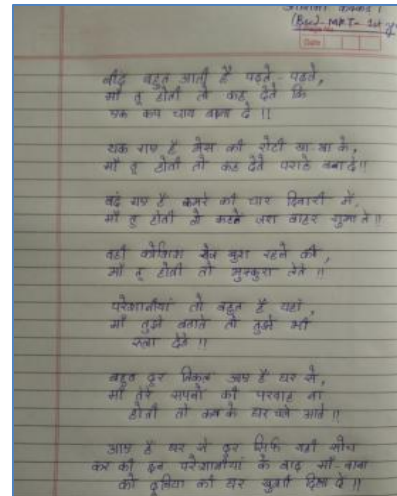 (Bsc)- MRT- 1st
Date
नींद बहुत आती है पढ़ते - पढ़ते,
माँ तू होती तो कह देते कि
एक कप चाय बना दे !!
थक गए है मेस की रोटी खा खा के,
माँ तू होती तो कह देते पराठे बना दे !!
बंद गए है कमरे की चार दिवारी में,
माँ तू होती तो कहते जरा बाहर घुमा ले !!
वही कोशिश रोज खुश रहने की,
माँ तू होती तो मुस्कुरा लेते !!
परेशानीयां तो बहुत है यहां,
माँ तुझे बताते तो तुझे भी
रुला देते !!
बहुत दूर निकल आए है घर से,
माँ तेरे सपनों की परवाह ना
होती तो कब के घर चले आते !!
आए है घर से दूर सिर्फ यही सोच
कर की इन परेशानीयां के बाद माँ-बाबा
को दुनिया की हर खुशी दिला दे !!